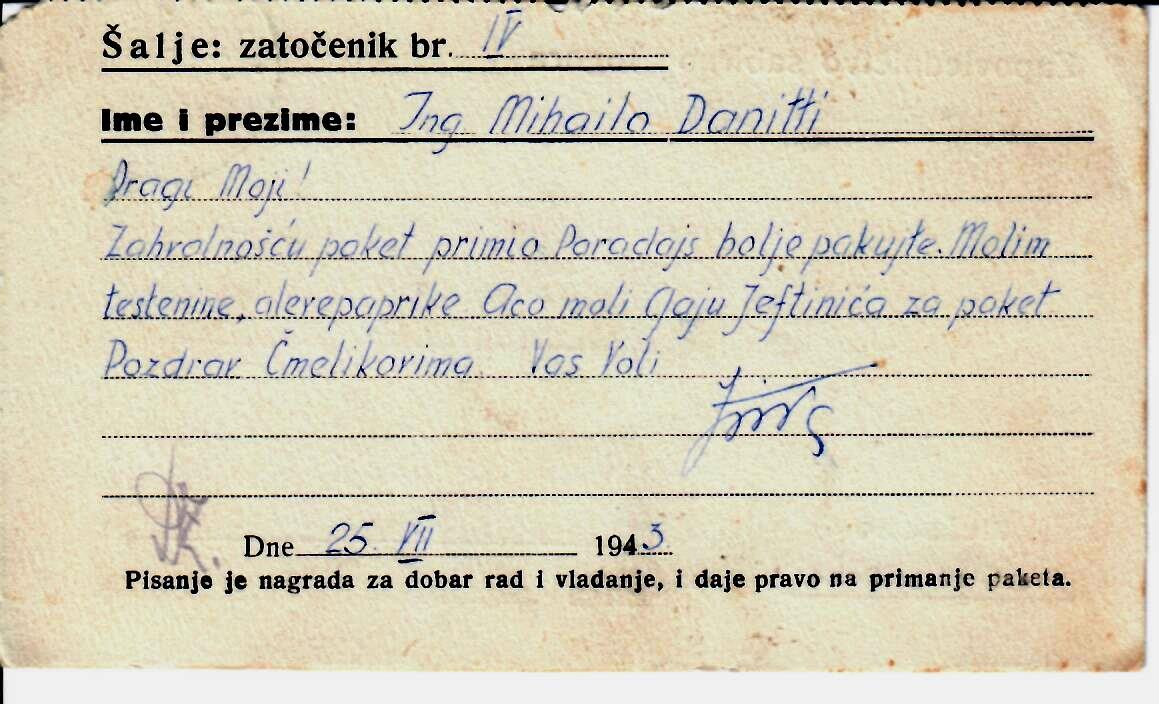 Šalje: zatočenik br. IV
Ime i prezime: Ing Mihailo Danitti
Dragi Moji!
Zahvalnošću paket primio Paradajs bolje pakujte. Molim
testenine, alevepaprike Aco moli Gaju Jeftinića za paket
Pozdrav Čmelikovima Vas Voli
Dne 25 VII 1943
Pisanje je nagrada za dobar rad i vladanje, i daje pravo na primanje paketa.